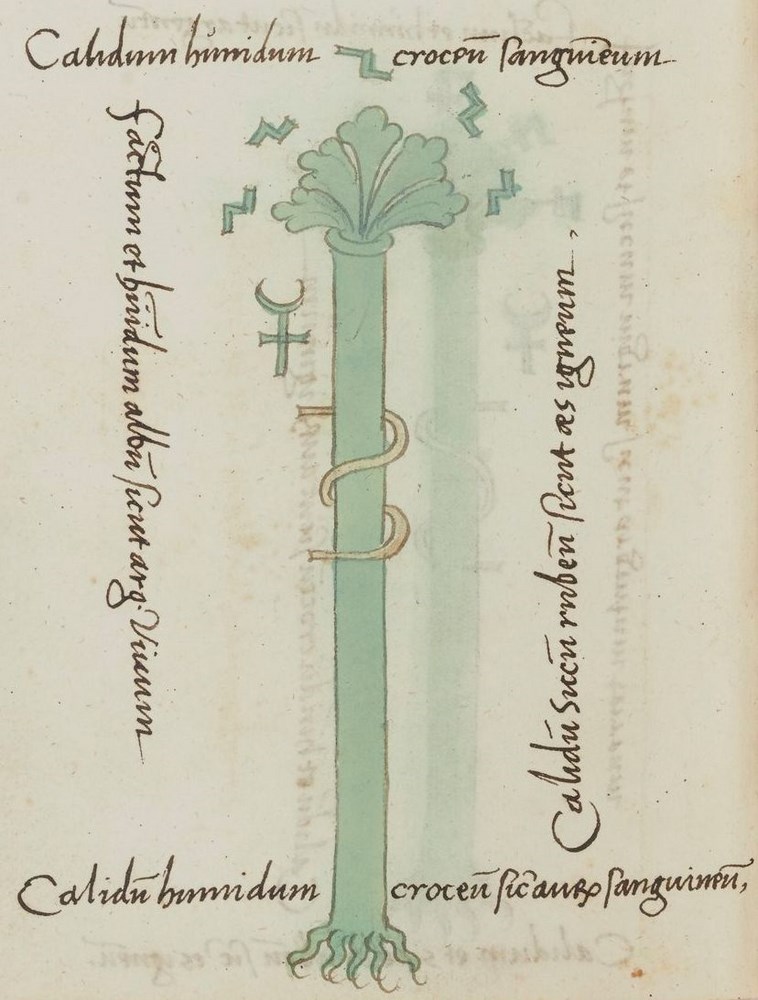 Calidum hūmidum croceū sanguīeum
factum et hūidum albū sicut arg. Viuum
Calidū Siccū rubeū sicut aes igneum,
Calidū humidum croceū sic̄ aurꝝ sanguineū,